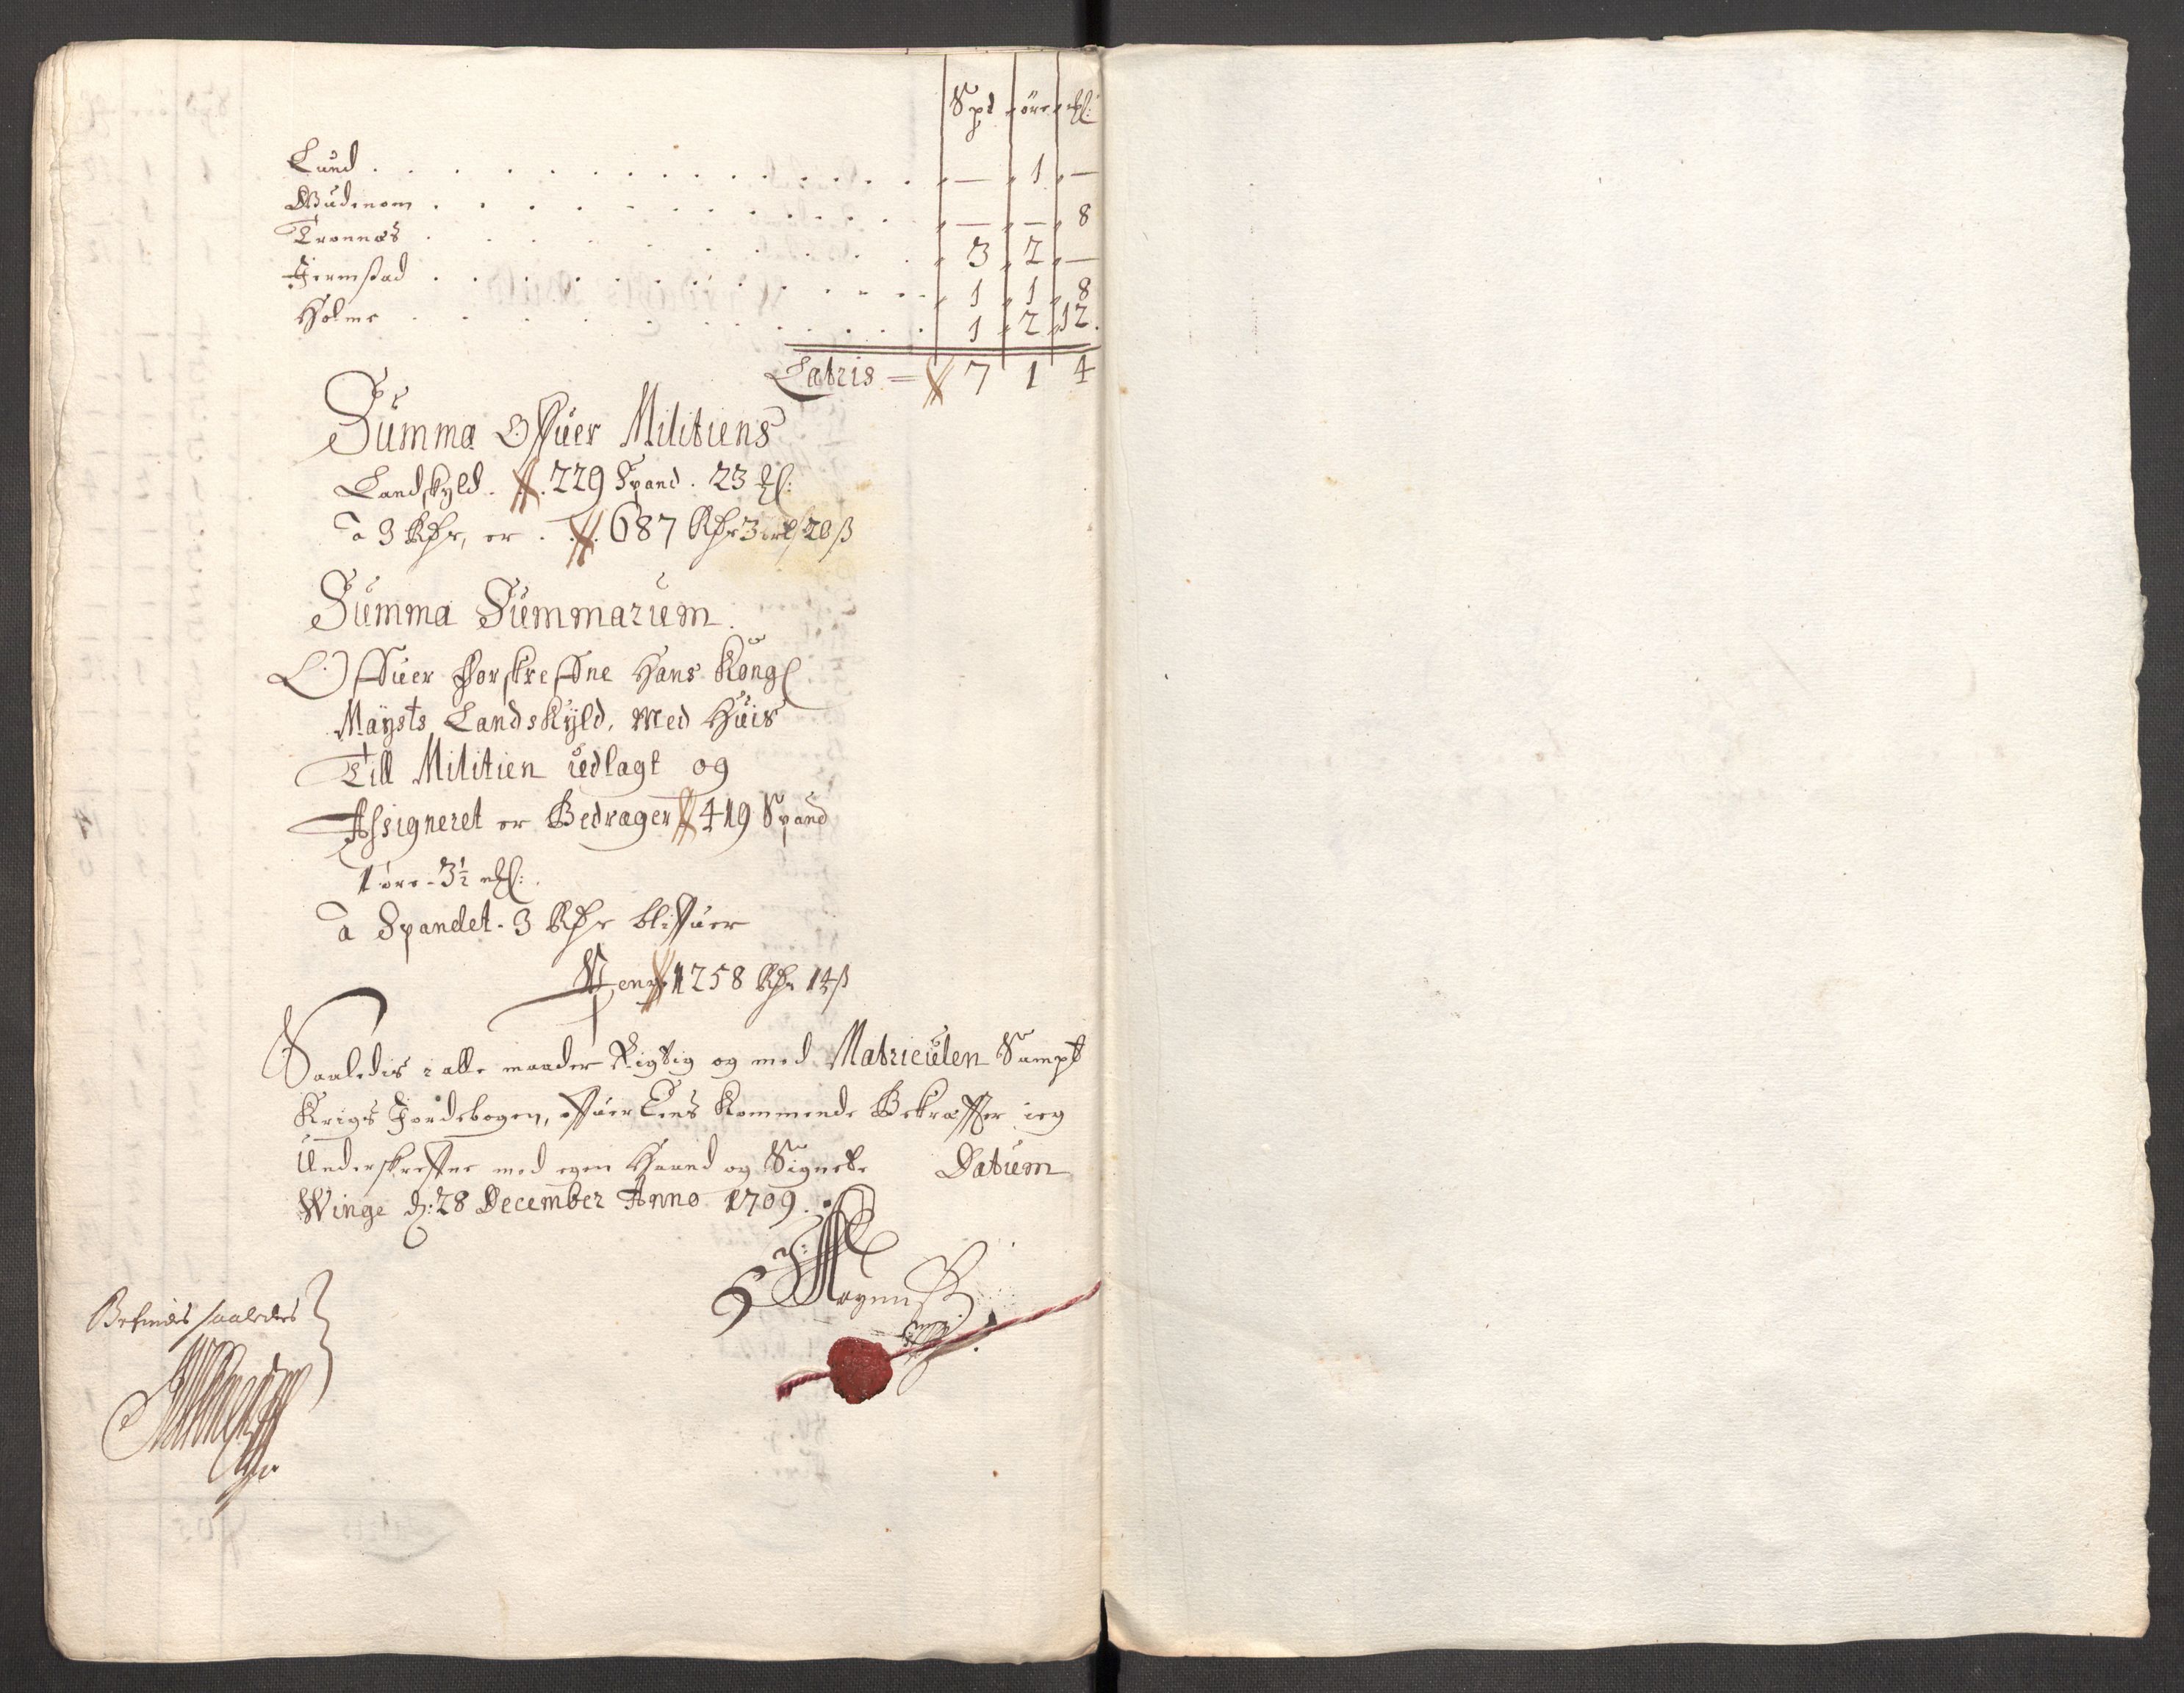 Spd øre mℓ:
Lund . . . — 1 —
Wudenom . . . — — 8
Tronnæs . . . 3 2 —
Jermstad . . . 1 1 8
Holme . . . 1 2 12.
Latris = 7 1 4
Summa Offuer Militiens
Landskyld. 229 Spand. 23 mℓ:
a 3 Rdr, er. 687 Rdr 3 ort 20 ß
Summa Summarum.
Offuer forskreffne Hans Kongℓ
Maÿsts Landskÿld, Med Huis
Till Militien udlagt og
Assigneret er Bedrager 419 Spand
1 øre - 3½ mℓ:
a Spandet - 3 Rdr bliffuer
Penge 1258 Rdr 14 ß
Saaledis i alle maader Rigtig og med Matriculen Sampt
Krigs Jordebogen, offuer Eens Kommende Bekræffter ieg
Underskreffne med egen Haand og Signete Datum
Winge d: 28 December Anno 1709.
Befindes saaledes